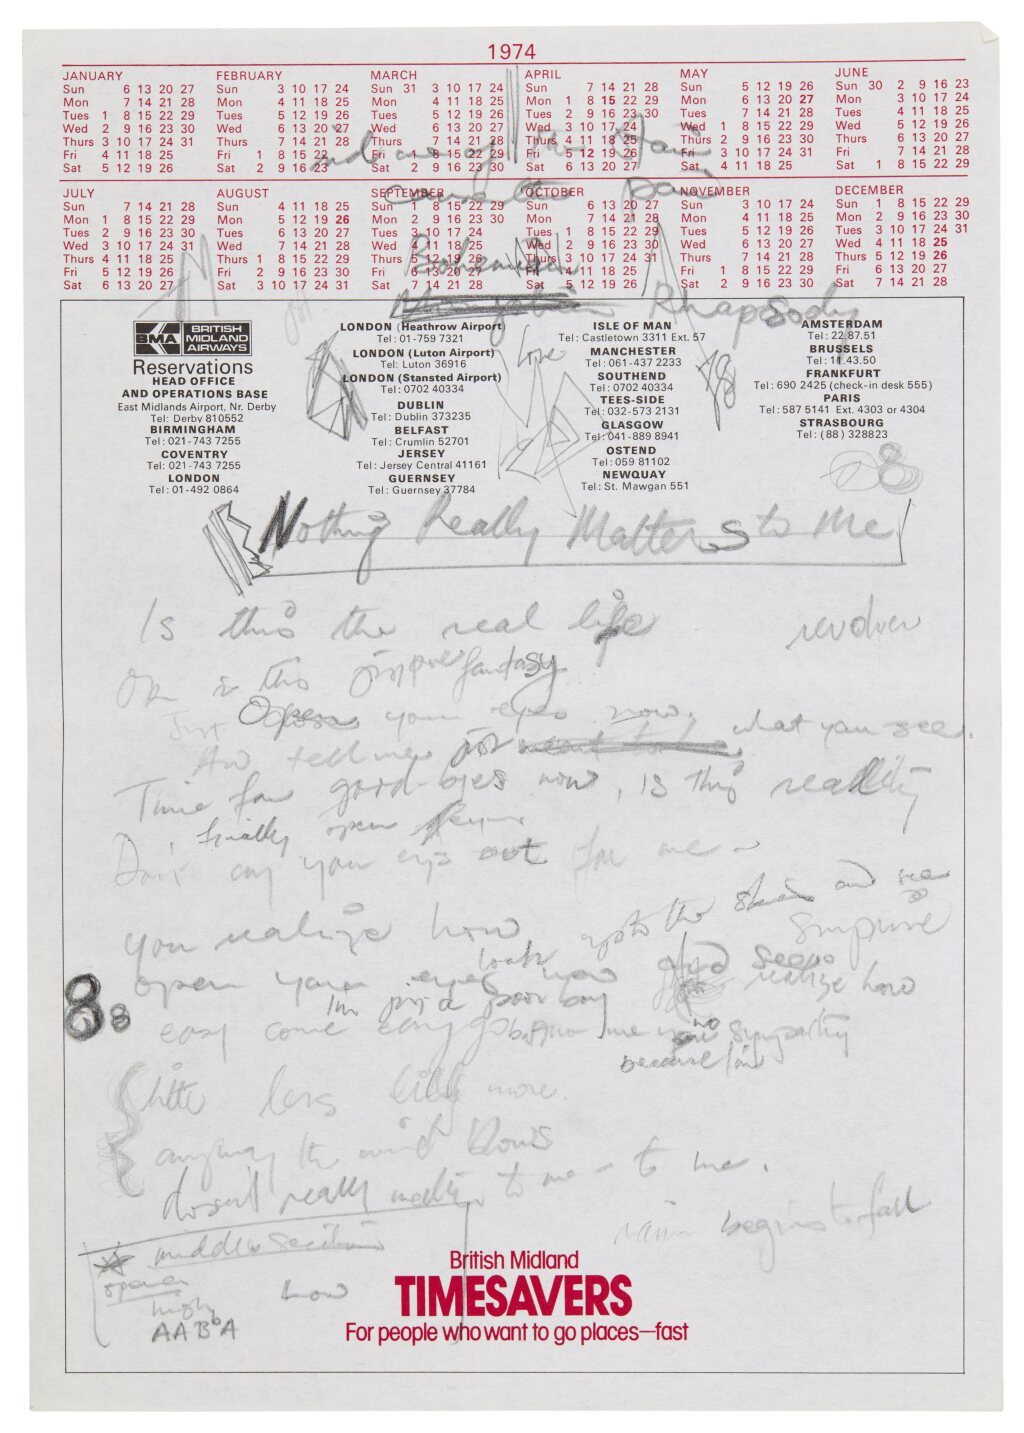 1974
JANUARY
Sun 6 13 20 27
Mon 7 14 21 28
Tues 1 8 15 22 29
Wed 2 9 16 23 30
Thurs 3 10 17 24 31
Fri 4 11 18 25
Sat 5 12 19 26
FEBRUARY
Sun 3 10 17 24
Mon 4 11 18 25
Tues 5 12 19 26
Wed 6 13 20 27
Thurs 7 14 21 28
Fri 1 8 15 22
Sat 2 9 16 23
MARCH
Sun 31 3 10 17 24
Mon 4 11 18 25
Tues 5 12 19 26
Wed 6 13 20 27
Thurs 7 14 21 28
Fri 1 8 15 22 29
Sat 2 9 16 23 30
APRIL
Sun 7 14 21 28
Mon 1 8 15 22 29
Tues 2 9 16 23 30
Wed 3 10 17 24
Thurs 4 11 18 25
Fri 5 12 19 26
Sat 6 13 20 27
MAY
Sun 5 12 19 26
Mon 6 13 20 27
Tues 7 14 21 28
Wed 1 8 15 22 29
Thurs 2 9 16 23 30
Fri 3 10 17 24 31
Sat 4 11 18 25
JUNE
Sun 30 2 9 16 23
Mon 3 10 17 24
Tues 4 11 18 25
Wed 5 12 19 26
Thurs 6 13 20 27
Fri 7 14 21 28
Sat 1 8 15 22 29
JULY
Sun 7 14 21 28
Mon 1 8 15 22 29
Tues 2 9 16 23 30
Wed 3 10 17 24 31
Thurs 4 11 18 25
Fri 5 12 19 26
Sat 6 13 20 27
AUGUST
Sun 4 11 18 25
Mon 5 12 19 26
Tues 6 13 20 27
Wed 7 14 21 28
Thurs 1 8 15 22 29
Fri 2 9 16 23 30
Sat 3 10 17 24 31
SEPTEMBER
Sun 1 8 15 22 29
Mon 2 9 16 23 30
Tues 3 10 17 24
Wed 4 11 18 25
Thurs 5 12 19 26
Fri 6 13 20 27
Sat 7 14 21 28
OCTOBER
Sun 6 13 20 27
Mon 7 14 21 28
Tues 1 8 15 22 29
Wed 2 9 16 23 30
Thurs 3 10 17 24 31
Fri 4 11 18 25
Sat 5 12 19 26
NOVEMBER
Sun 3 10 17 24
Mon 4 11 18 25
Tues 5 12 19 26
Wed 6 13 20 27
Thurs 7 14 21 28
Fri 1 8 15 22 29
Sat 2 9 16 23 30
DECEMBER
Sun 1 8 15 22 29
Mon 2 9 16 23 30
Tues 3 10 17 24 31
Wed 4 11 18 25
Thurs 5 12 19 26
Fri 6 13 20 27
Sat 7 14 21 28
Bohemian
Rhapsody
BMA BRITISH MIDLAND AIRWAYS
Reservations
HEAD OFFICE
AND OPERATIONS BASE
East Midlands Airport, Nr. Derby
Tel: Derby 810552
BIRMINGHAM
Tel: 021-743 7255
COVENTRY
Tel: 021-743 7255
LONDON
Tel: 01-492 0864
LONDON (Heathrow Airport)
Tel: 01-759 7321
LONDON (Luton Airport)
Tel: Luton 36916
LONDON (Stansted Airport)
Tel: 0702 40334
DUBLIN
Tel: Dublin 373235
BELFAST
Tel: Crumlin 52701
JERSEY
Tel: Jersey Central 41161
GUERNSEY
Tel: Guernsey 37784
Love
ISLE OF MAN
Tel: Castletown 3311 Ext. 57
MANCHESTER
Tel: 061-437 2233
SOUTHEND
Tel: 0702 40334
TEES-SIDE
Tel: 032-573 2131
GLASGOW
Tel: 041-889 8941
OSTEND
Tel: 059 81102
NEWQUAY
Tel: St. Mawgan 551
AMSTERDAM
Tel: 22.87.51
BRUSSELS
Tel: 11.43.50
FRANKFURT
Tel: 690 2425 (check-in desk 555)
PARIS
Tel: 587 5141 Ext. 4303 or 4304
STRASBOURG
Tel: (88) 328823
8
Nothing Really Matters to Me
Is this the real life
revolver
Or is this fantasy
Just Open your eyes now
And tell me what you see.
Time for good-byes now, is this reality
finally open
Don't cry your eyes out for me
you realize how
look up to the skies and see
surprise
open your eyes now realize how
I'm just a poor boy
easy come easy go no sympathy
because I'm
8 8
little less little more.
anyway the wind blows
doesn't really matter to me - to me.
begins to fall
middle section
opera
how
high
AABbA
British Midland
TIMESAVERS
For people who want to go places—fast